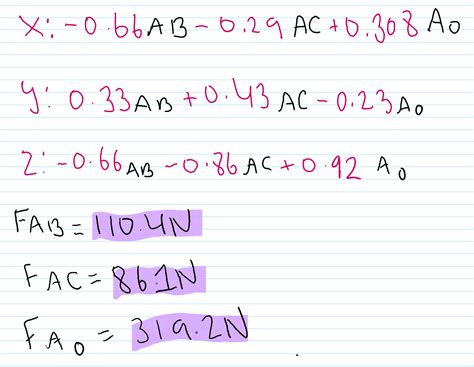 X: -0.66AB - 0.29 AC + 0.308 Ao
y: 0.33AB + 0.43 AC - 0.23Ao
Z: -0.66AB - 0.86 AC + 0.92 Ao
FAB = 110.4N
FAC = 86.1N
FAo = 319.2N